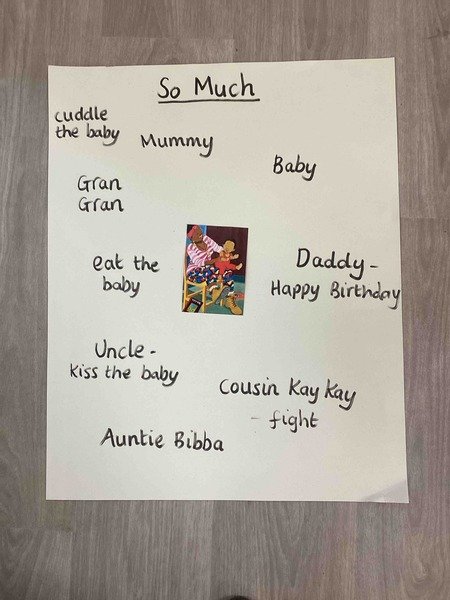 So Much
cuddle
the baby
Mummy
Baby
Gran
Gran
eat the
baby
Daddy -
Happy Birthday
Uncle -
Kiss the baby
Cousin Kay Kay
- fight
Auntie Bibba